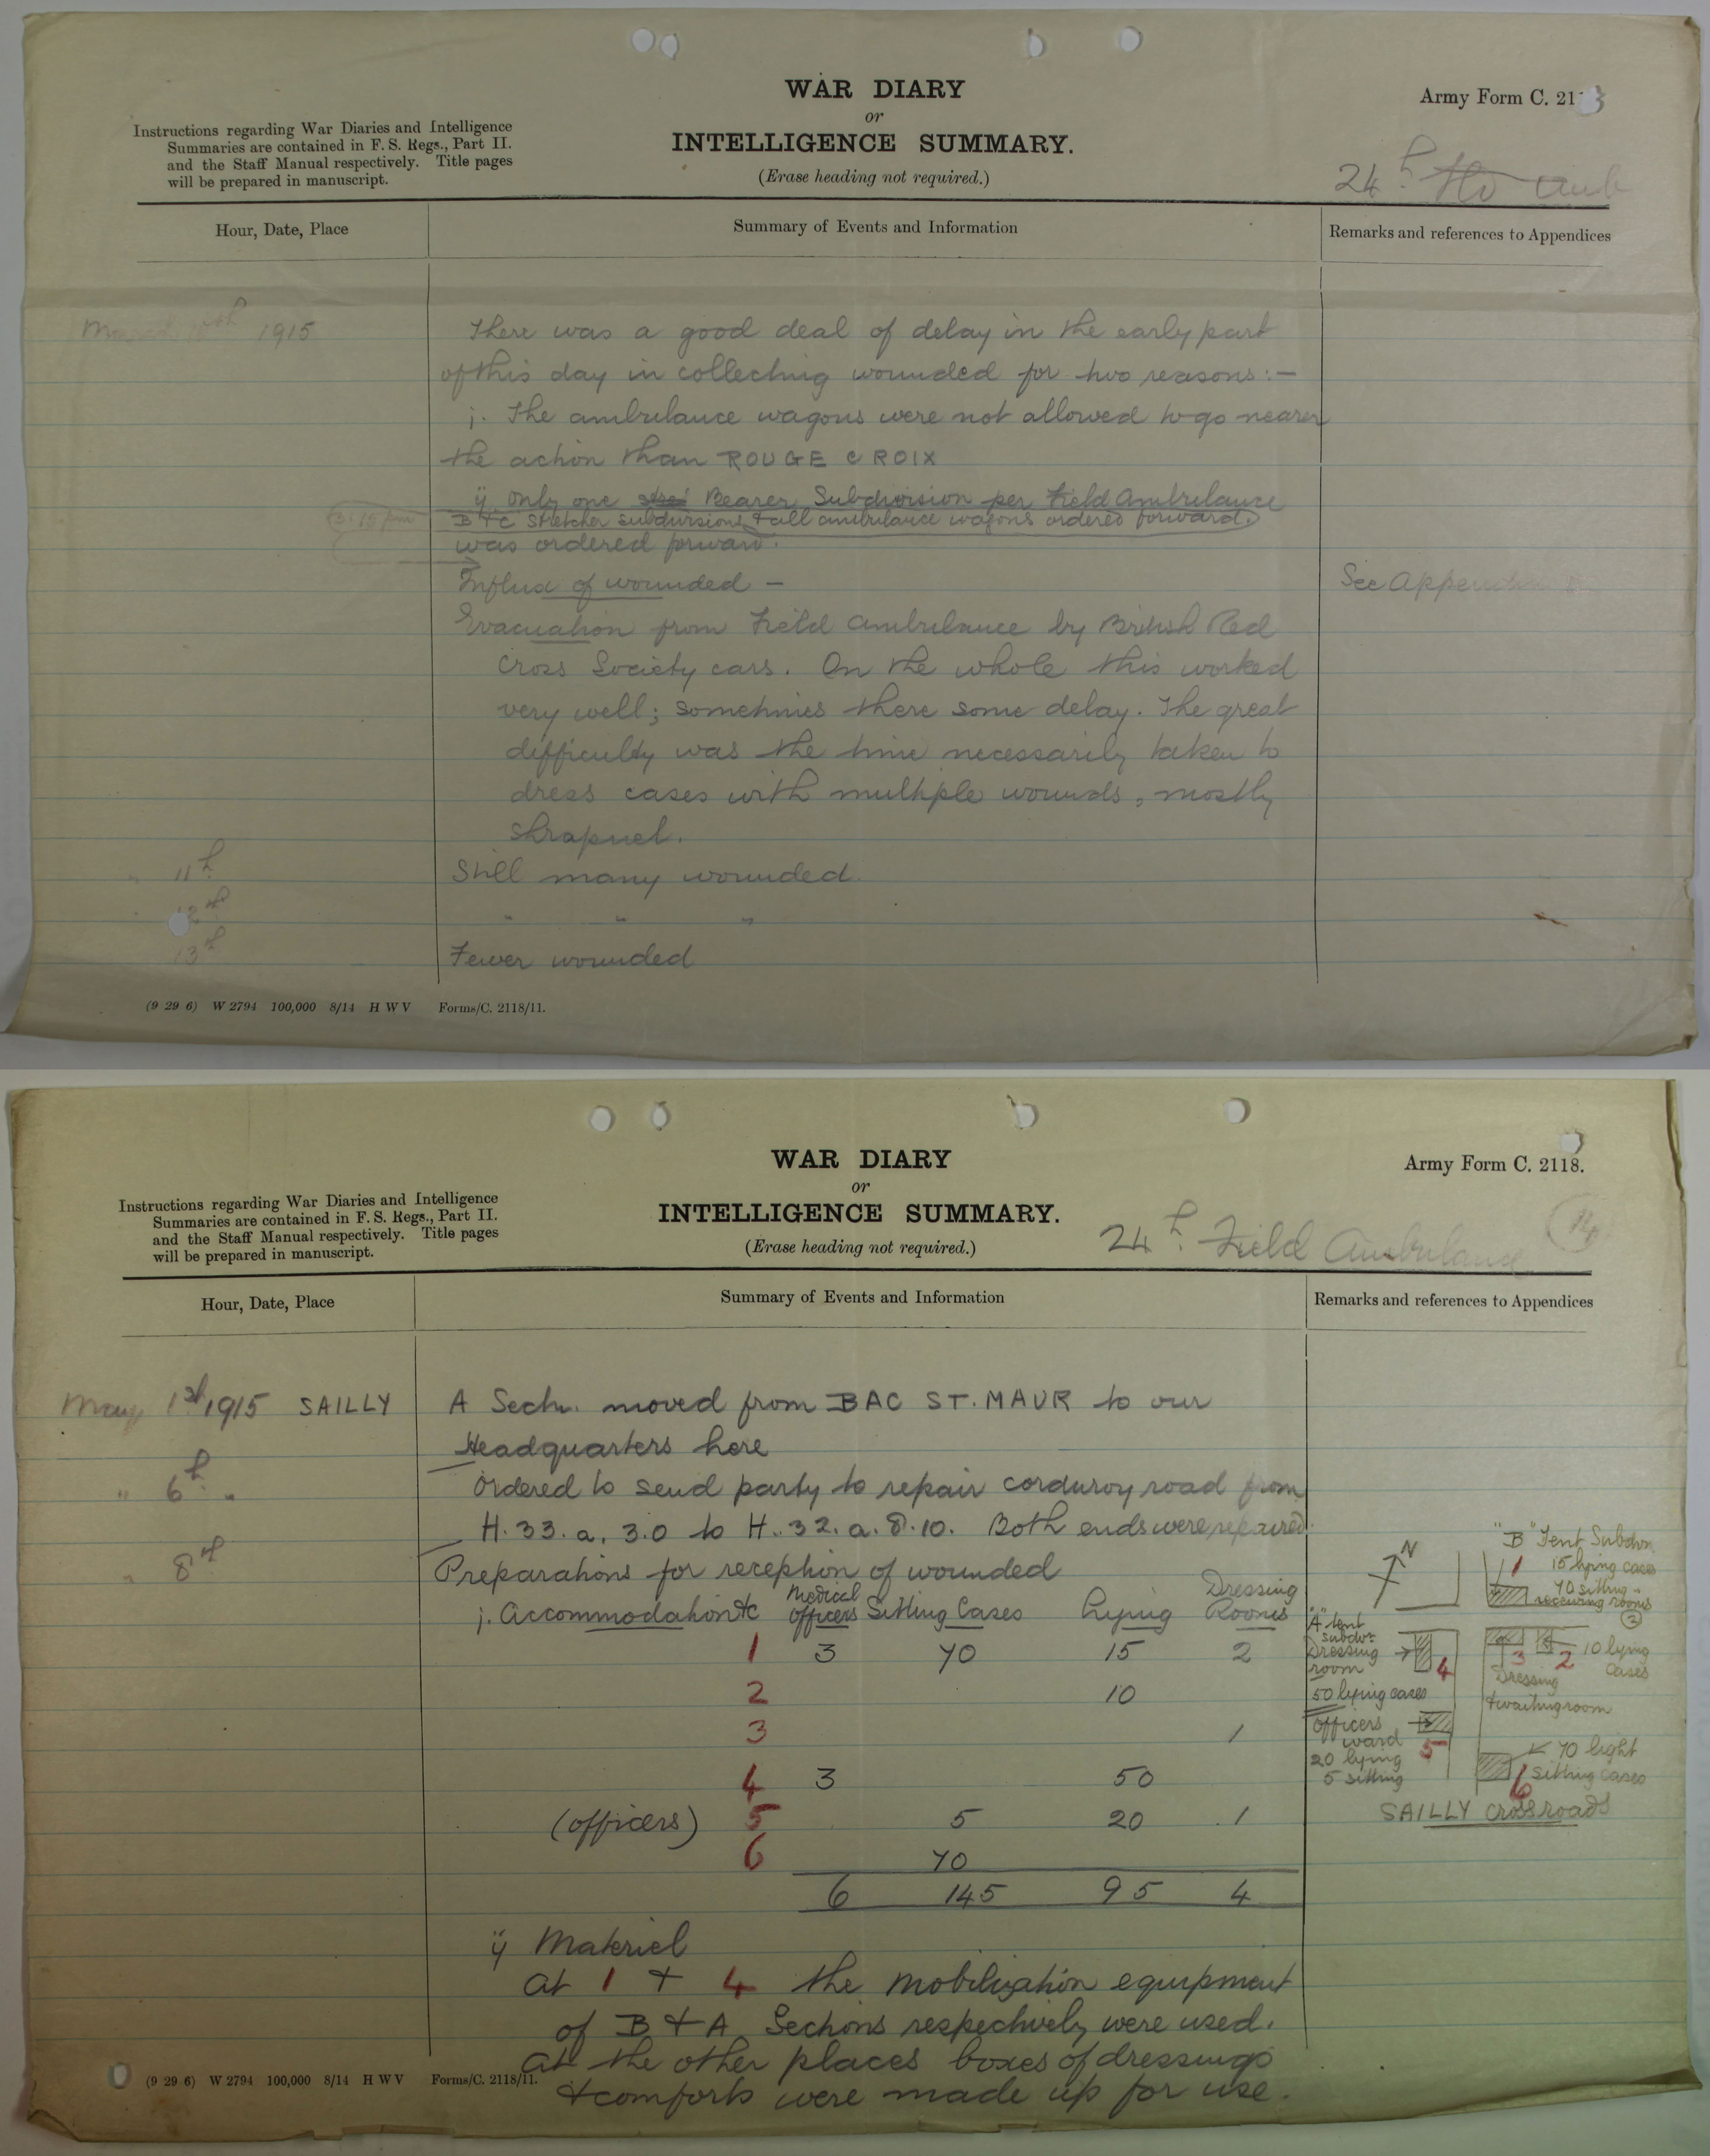 WAR DIARY
or
INTELLIGENCE SUMMARY.
(Erase heading not required.)
Army Form C. 211
Instructions regarding War Diaries and Intelligence
Summaries are contained in F. S. Regs., Part II.
and the Staff Manual respectively. Title pages
will be prepared in manuscript.
24th Fld Amb
Hour, Date, Place
Summary of Events and Information
Remarks and references to Appendices
March 10th 1915
There was a good deal of delay in the early part
of this day in collecting wounded for two reasons:—
i. The ambulance wagons were not allowed to go nearer
the action than ROUGE CROIX
ii only one Bearer Subdivision per Field Ambulance
3.15 pm
B & C Stretcher subdivisions & all ambulance wagons ordered forward.
was ordered forward.
Influx of wounded —
See Appendix
Evacuation from Field Ambulance by British Red
Cross Society cars. On the whole this worked
very well; sometimes there some delay. The great
difficulty was the time necessarily taken to
dress cases with multiple wounds, mostly
shrapnel.
" 11th
Still many wounded.
" 12th
" " "
13th
Fewer wounded
(9 29 6) W 2794 100,000 8/14 H W V Forms/C. 2118/11.
WAR DIARY
or
INTELLIGENCE SUMMARY.
(Erase heading not required.)
Army Form C. 2118.
Instructions regarding War Diaries and Intelligence
Summaries are contained in F. S. Regs., Part II.
and the Staff Manual respectively. Title pages
will be prepared in manuscript.
24th Field Ambulance
14
Hour, Date, Place
Summary of Events and Information
Remarks and references to Appendices
May 1st 1915 SAILLY
A Sectn. moved from BAC ST. MAUR to our
Headquarters here
" 6th "
Ordered to send party to repair corduroy road from
H. 33. a. 3.0 to H. 32. a. 8. 10. Both ends were repaired.
" 8th
Preparations for reception of wounded
i. Accommodation &c Medical Officers Sitting Cases Lying Dressing Rooms
1 3 70 15 2
2 10
3 1
4 3 50
(officers) 5 5 20 1
6 70
6 145 95 4
N
"B" Tent Subdivn.
1 15 lying cases
70 sitting -
receiving rooms
2
"A" tent
subdvn
Dressing
room
4
50 lying cases
3 2 10 lying
cases
Dressing
& waiting room
Officers
ward
5
20 lying
5 sitting
70 light
sitting cases
6
SAILLY cross roads
ii Materiel
At 1 & 4 the mobilization equipment
of B & A Sections respectively were used.
At the other places boxes of dressings
& comforts were made up for use.
(9 29 6) W 2794 100,000 8/14 H W V Forms/C. 2118/11.